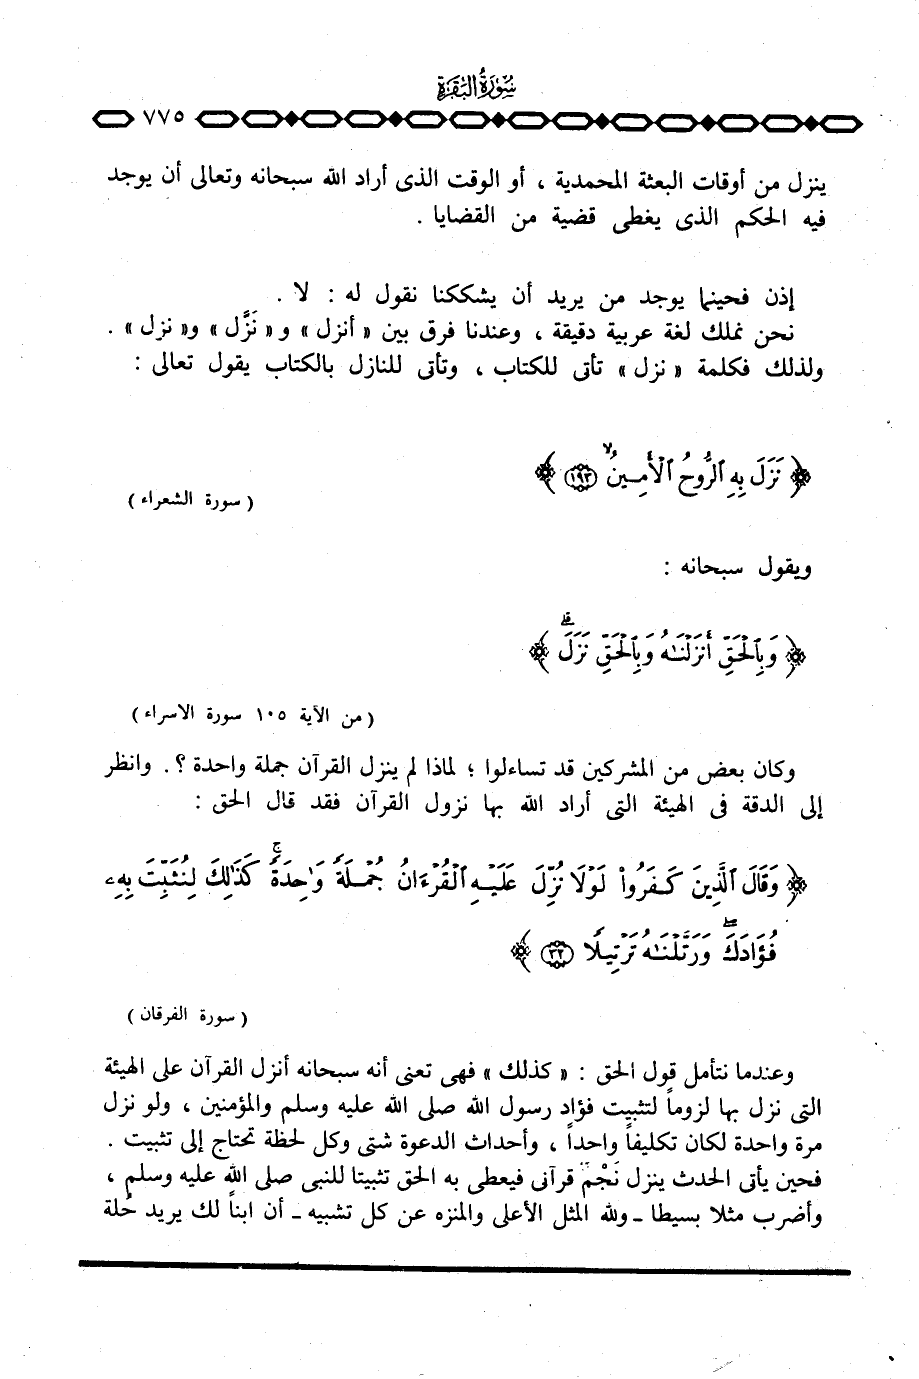 سُورَةُ البَقَرَةِ
٧٧٥
ينزل من أوقات البعثة المحمدية ، أو الوقت الذى أراد الله سبحانه وتعالى أن يوجد
فيه الحكم الذى يغطى قضية من القضايا .
إذن فحينما يوجد من يريد أن يشككنا نقول له : لا .
نحن نملك لغة عربية دقيقة ، وعندنا فرق بين « أنزل » و « نَزَّل » و« نزل » .
ولذلك فكلمة « نزل » تأتى للكتاب ، وتأتى للنازل بالكتاب يقول تعالى :
﴿ نَزَلَ بِهِ ٱلرُّوحُ ٱلْأَمِينُ ۙ ١٩٣ ﴾
( سورة الشعراء )
ويقول سبحانه :
﴿ وَبِٱلْحَقِّ أَنزَلْنَٰهُ وَبِٱلْحَقِّ نَزَلَ ۗ ﴾
( من الآية ١٠٥ سورة الاسراء )
وكان بعض من المشركين قد تساءلوا ؛ لماذا لم ينزل القرآن جملة واحدة ؟ . وانظر
إلى الدقة فى الهيئة التى أراد الله بها نزول القرآن فقد قال الحق :
﴿ وَقَالَ ٱلَّذِينَ كَفَرُوا۟ لَوْلَا نُزِّلَ عَلَيْهِ ٱلْقُرْءَانُ جُمْلَةً وَٰحِدَةً ۚ كَذَٰلِكَ لِنُثَبِّتَ بِهِۦ
فُؤَادَكَ ۖ وَرَتَّلْنَٰهُ تَرْتِيلًا ٣٢ ﴾
( سورة الفرقان )
وعندما نتأمل قول الحق : « كذلك » فهى تعنى أنه سبحانه أنزل القرآن على الهيئة
التى نزل بها لزوماً لتثبيت فؤاد رسول الله صلى الله عليه وسلم والمؤمنين ، ولو نزل
مرة واحدة لكان تكليفاً واحداً ، وأحداث الدعوة شتى وكل لحظة تحتاج إلى تثبيت .
فحين يأتى الحدث ينزل نَجْمٌ قرآنى فيعطى به الحق تثبيتا للنبى صلى الله عليه وسلم ،
وأضرب مثلا بسيطا ـ ولله المثل الأعلى والمنزه عن كل تشبيه ـ أن ابناً لك يريد حُلة